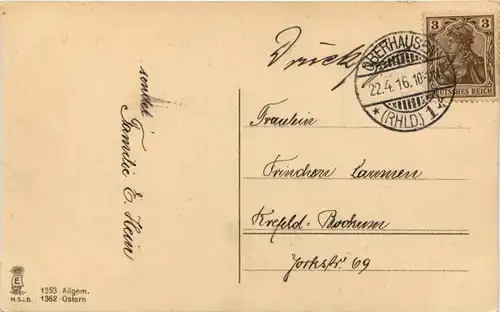 Drucks
sendet
Familie E. Hein
3 3
DEUTSCHES REICH
OBERHAUSEN
22.4.16.10-
* (RHLD.) 1 *
Fräulein
Trinchen Laumen
Krefeld-Bockum
Yorkstr. 69
E
M.S.i.B.
1353 Allgem.
1362 Ostern